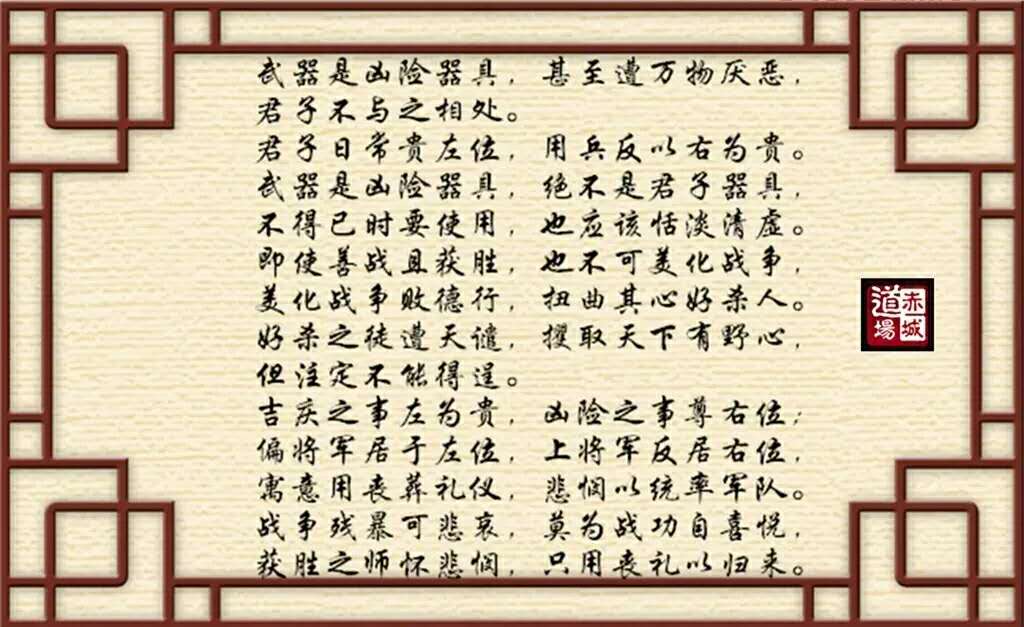 武器是凶险器具，甚至遭万物厌恶，
君子不与之相处。
君子日常贵左位，用兵反以右为贵。
武器是凶险器具，绝不是君子器具，
不得已时要使用，也应该恬淡清虚。
即使善战且获胜，也不可美化战争，
美化战争败德行，扭曲其心好杀人。
好杀之徒遭天谴，攫取天下有野心，
但注定不能得逞。
吉庆之事左为贵，凶险之事尊右位；
偏将军居于左位，上将军反居右位，
寓意用丧葬礼仪，悲悯以统率军队。
战争残暴可悲哀，莫为战功自喜悦，
获胜之师怀悲悯，只用丧礼以归来。
赤城
道場